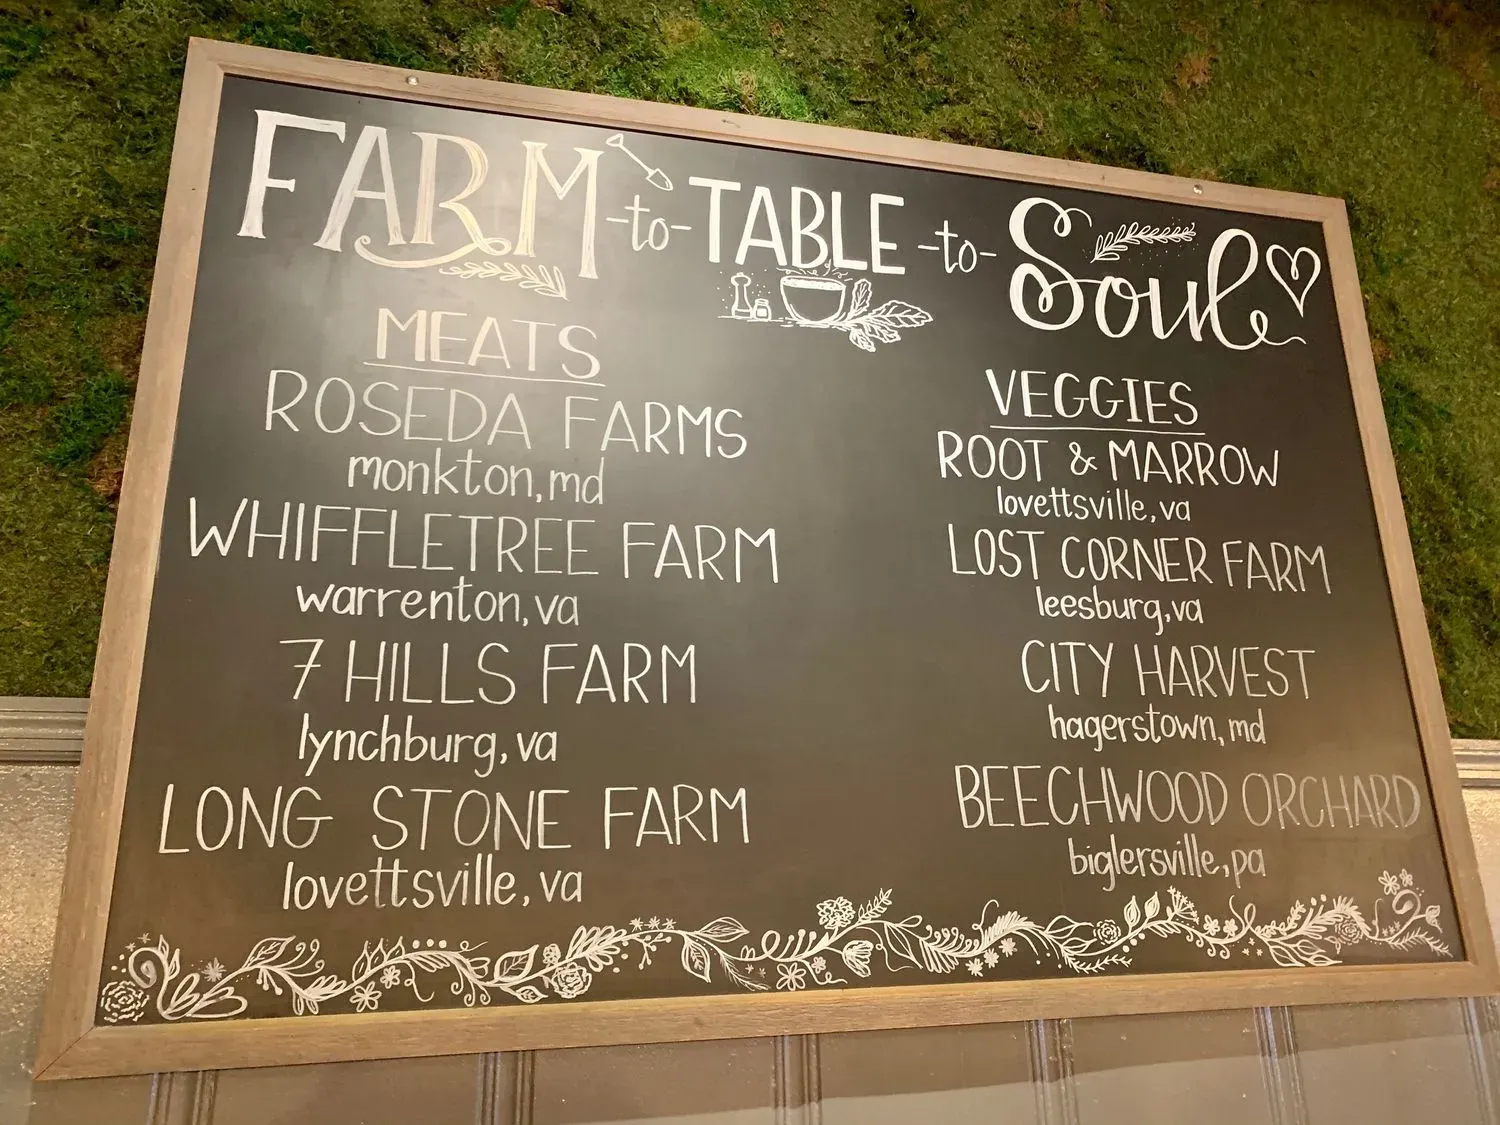 FARM -to- TABLE -to- Soul
MEATS
ROSEDA FARMS
monkton, md
WHIFFLETREE FARM
warrenton, va
7 HILLS FARM
lynchburg, va
LONG STONE FARM
lovettsville, va
VEGGIES
ROOT & MARROW
lovettsville, va
LOST CORNER FARM
leesburg, va
CITY HARVEST
hagerstown, md
BEECHWOOD ORCHARD
biglersville, pa